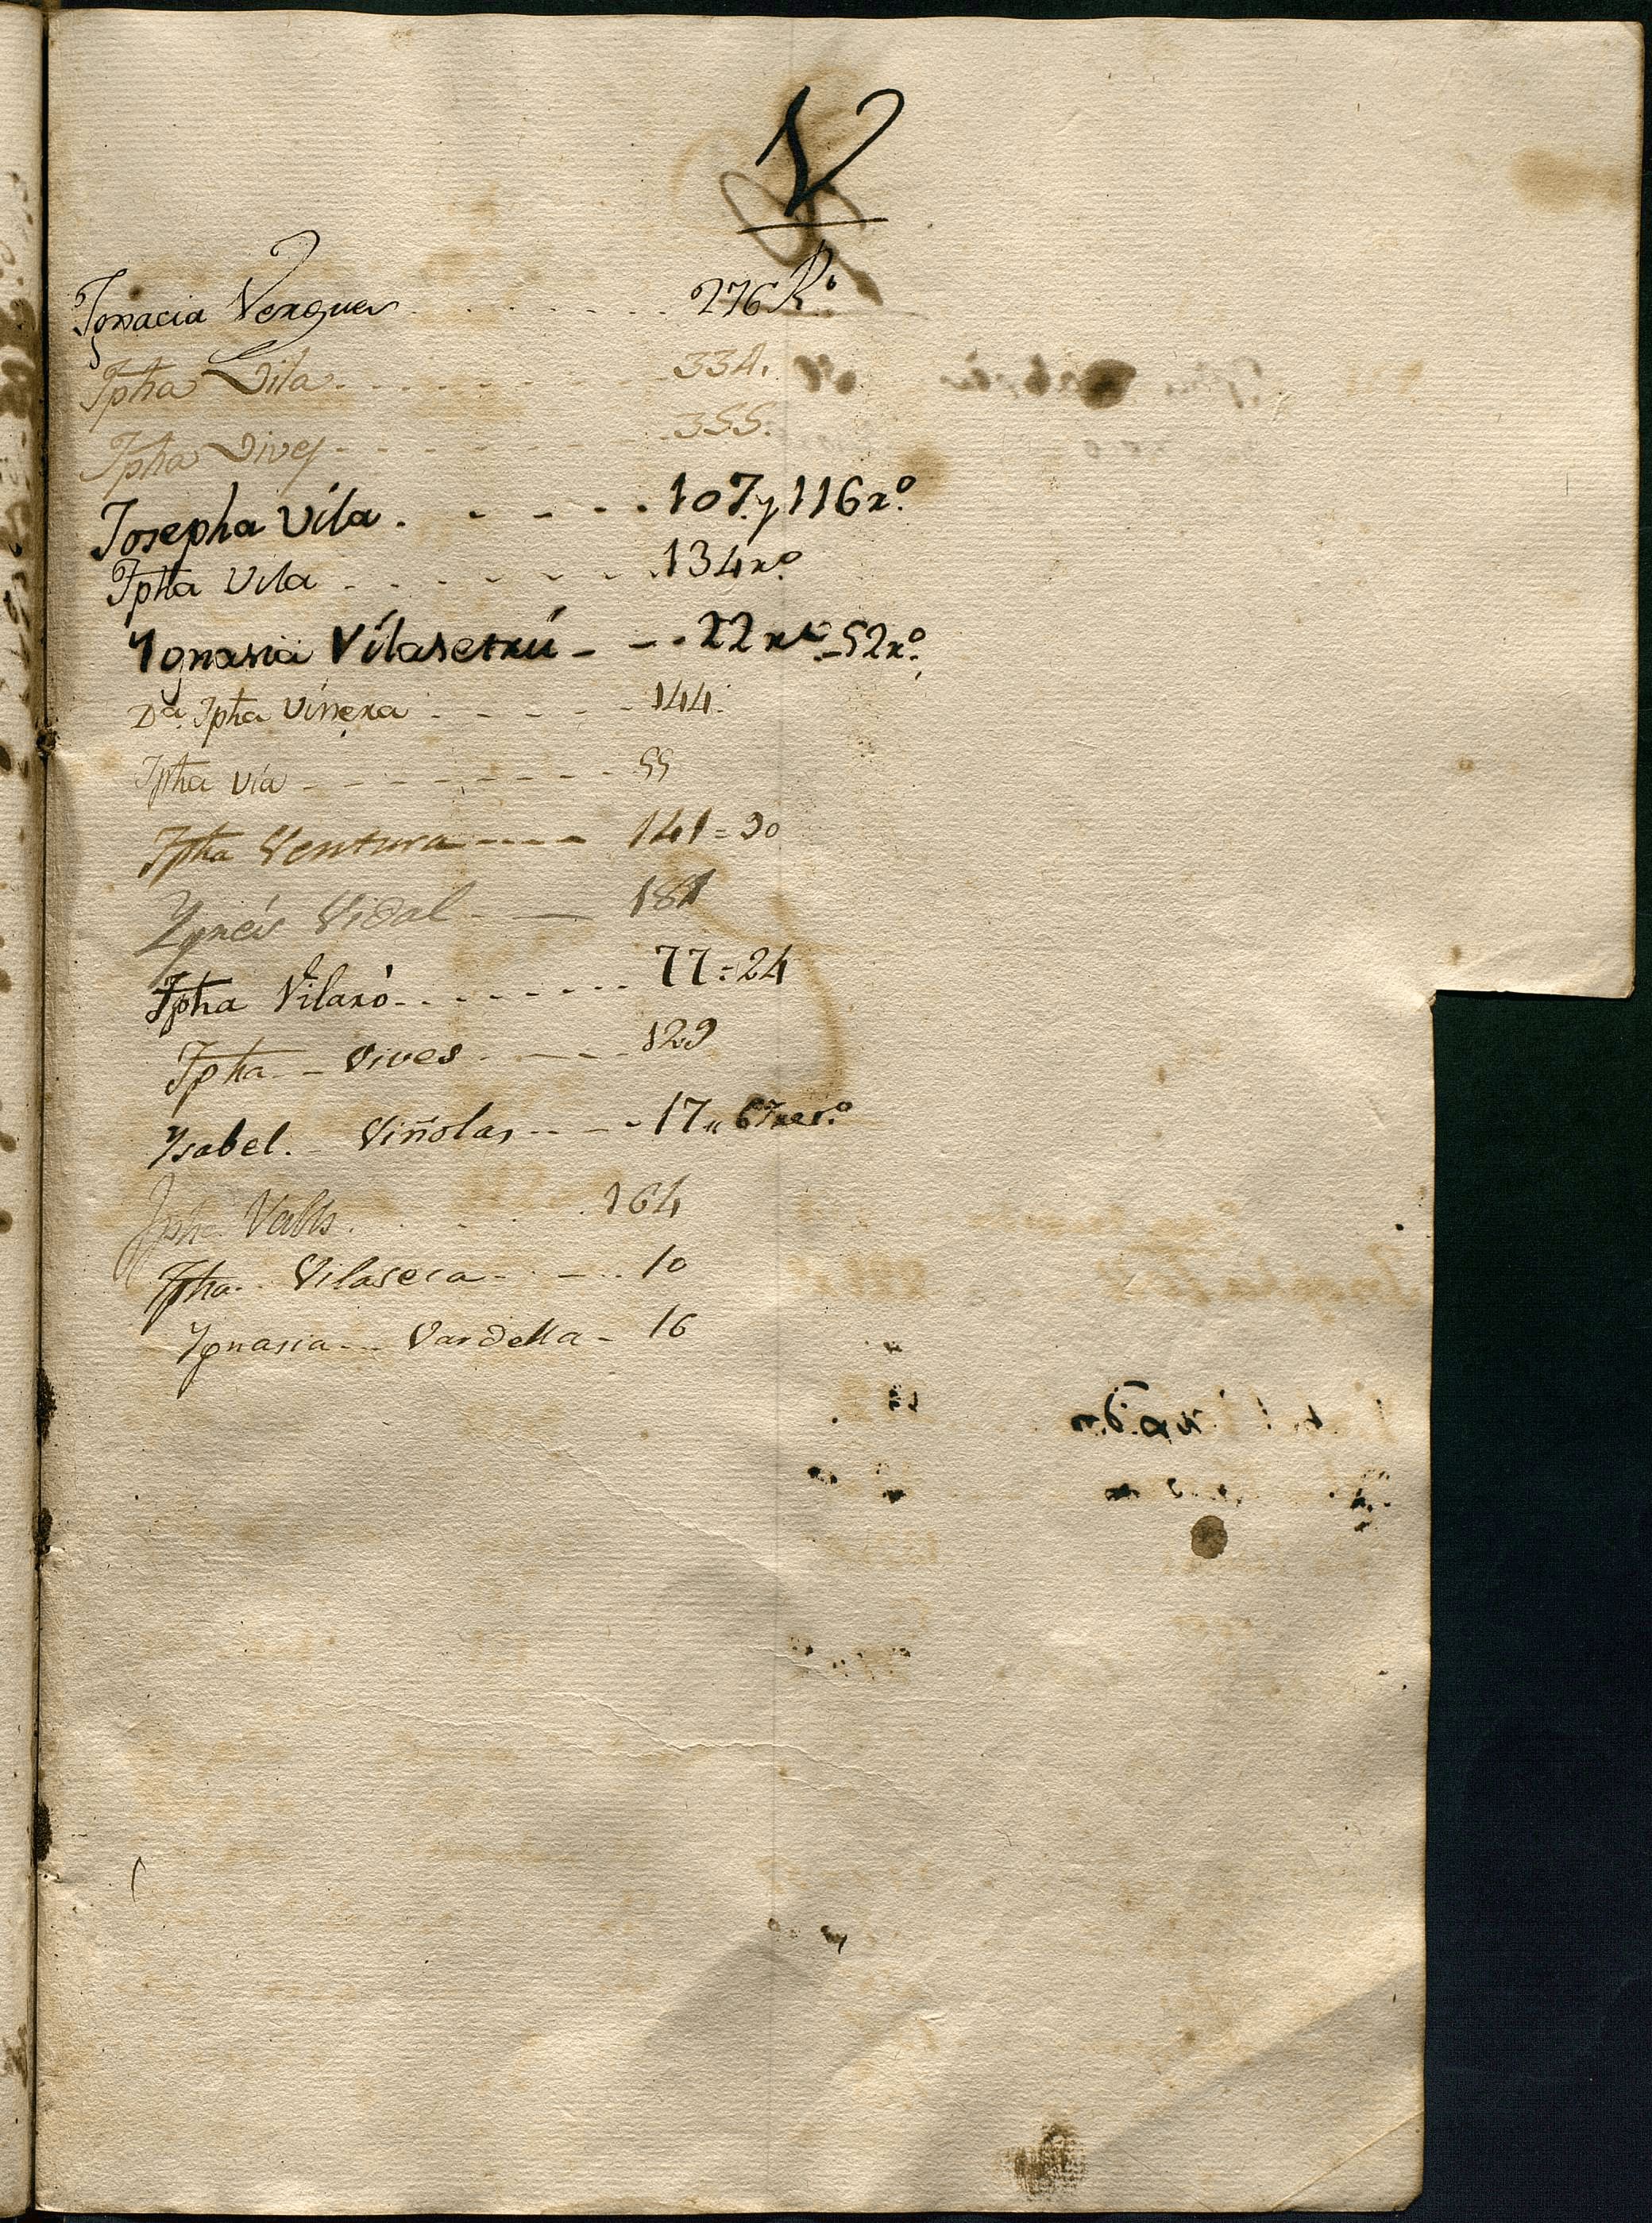 V
Ignacia Verguer . . . . . . . 276 Rº
Jpha Vila - - - - - - - - 334.
Jpha Vives - - - - - - - 355.
Josepha Vila . - - - - - 107 y 116 rº
Jpha Vila - - - - - - - 134 rº
Ygnasia Vilasetrú - - - 22 rº - 52 rº
Dª Jpha Viñera - - - - - 144.
Jpha Via - - - - - - - - 55
Jpha Ventura - - - - 141 = 90
Ygnés Vidal - — 181
Jpha Vilaró - - - - - - - 77 = 24
Jpha - - Vives - — - - 129
Ysabel. - Viñolas - - - - 17 „ 67
Jpha Valls . . . . . 164
Jpha - Vilaseca - - - - 10
Ygnasia - - - Vardella - 16